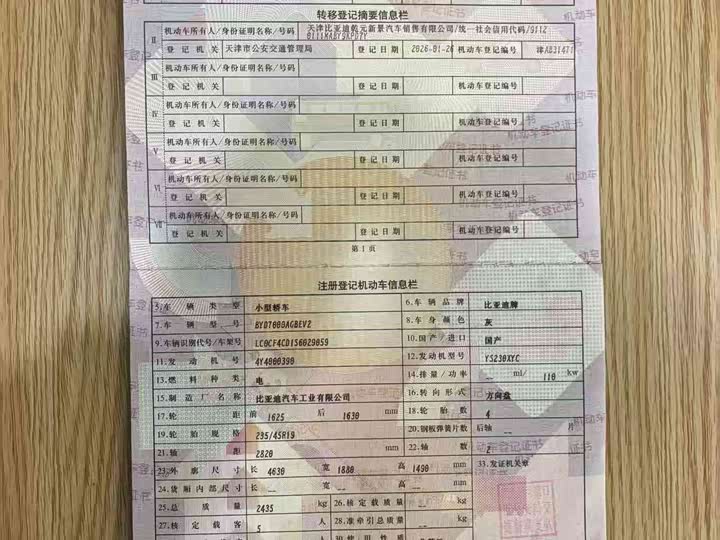 转移登记摘要信息栏
II 机动车所有人/身份证明名称/号码 天津比亚迪乾元新景汽车销售有限公司/统一社会信用代码/9112
登记机关 天津市公安交通管理局 登记日期 2026-01-26 机动车登记编号
III 机动车所有人/身份证明名称/号码
登记机关 登记日期 机动车登记编号
IV 机动车所有人/身份证明名称/号码
登记机关 登记日期 机动车登记编号
V 机动车所有人/身份证明名称/号码
登记机关 登记日期 机动车登记编号
VI 机动车所有人/身份证明名称/号码
登记机关 登记日期 机动车登记编号
VII 机动车所有人/身份证明名称/号码
登记机关 登记日期 机动车登记编号
第1页
注册登记机动车信息栏
5.车辆类型 小型轿车 6.车辆品牌 比亚迪牌
7.车辆型号 BYD7000AGBEV2 8.车身颜色 灰
9.车辆识别代号/车架号 LC0CF4CD1S6029059 10.国产/进口 国产
11.发动机号 4Y4000390 12.发动机型号 YSZ30XYC
13.燃料种类 电 14.排量/功率 -- ml/ 110 kw
15.制造厂名称 比亚迪汽车工业有限公司 16.转向形式 方向盘
17.轮距 前 1625 后 1630 mm 18.轮胎数 4
19.轮胎规格 235/45R19 20.钢板弹簧片数 后轴 -- 片
21.轴距 2820 mm 22.轴数 2
23.外廓尺寸 长 4630 宽 1880 高 1490 mm 33.发证机关章
24.货厢内部尺寸 长 -- 宽 -- 高 -- mm
25.总质量 2435 kg 26.核定载质量 -- kg
27.核定载客 5 人 28.准牵引总质量 -- kg